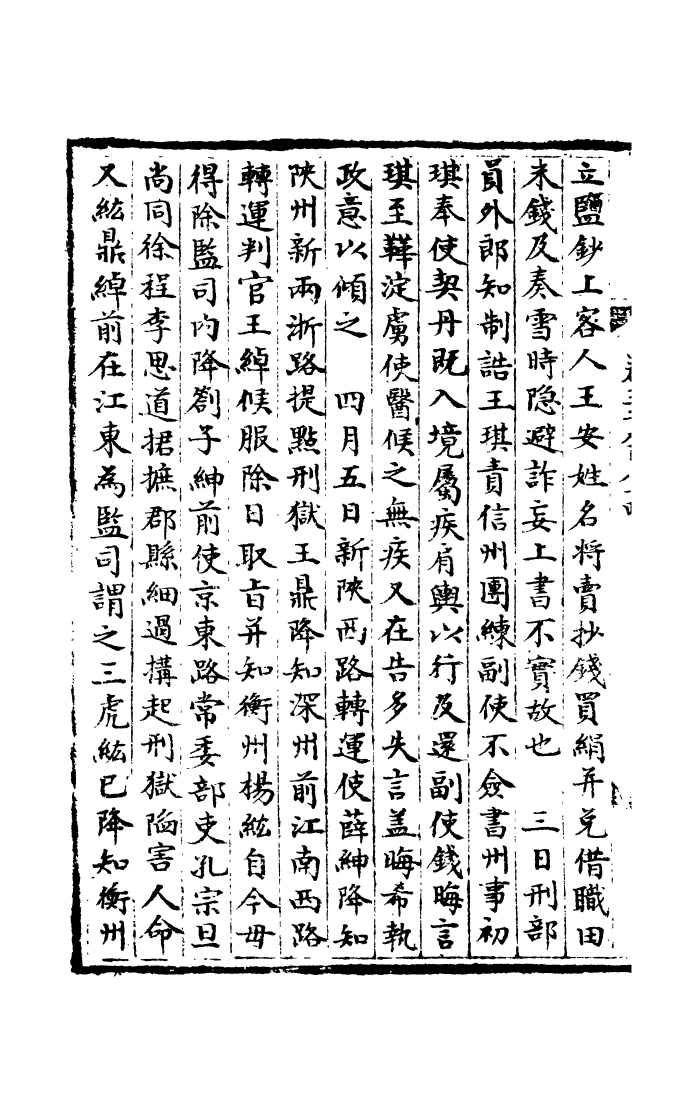 立鹽鈔上客人王安姓名将賣抄錢買絹并免借職田
末錢及奏雪時隐避詐妄上書不實故也　三日刑部
員外郎知制誥王琪責信州團練副使不僉書州事初
琪奉使契丹既入境屬疾肩輿以行及還副使錢晦言
琪至鞾淀虜使醫候之無疾又在告多失言盖晦希執
政意以傾之　四月五日新陜西路轉運使薛紳降知
陜州新兩浙路提點刑獄王鼎降知深州前江南西路
轉運判官王綽候服除日取㫖并知衡州楊紘自今毋
得除監司内降劄子紳前使京東路常委部吏孔宗旦
尚同徐程李思道捃摭郡縣細過搆起刑獄陥害人命
又紘鼎綽前在江東為監司謂之三虎紘已降知衡州